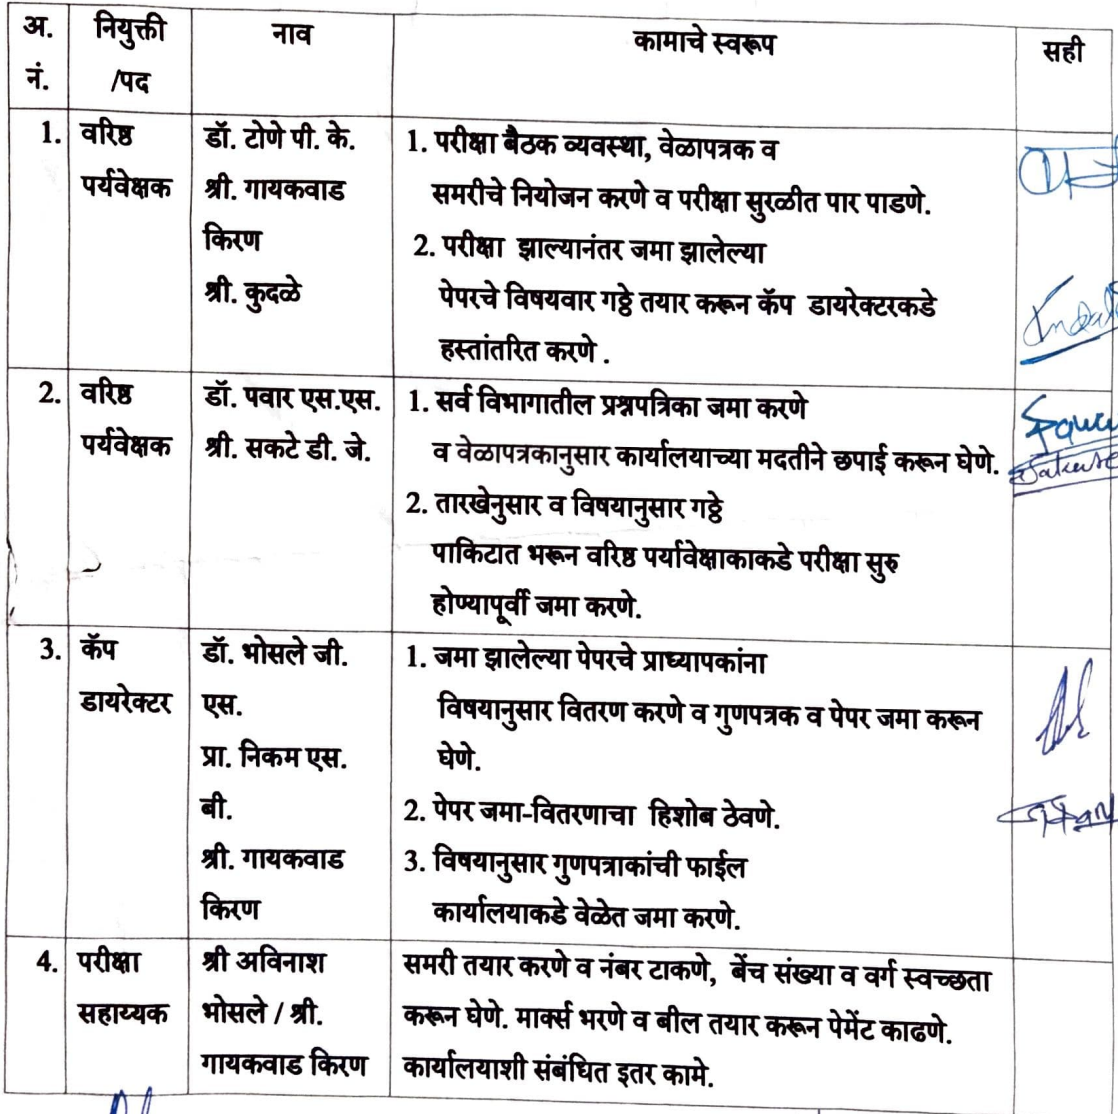 अ. नं. नियुक्ती /पद नाव कामाचे स्वरूप सही
1. वरिष्ठ पर्यवेक्षक
डॉ. टोणे पी. के.
श्री. गायकवाड
किरण
श्री. कुदळे
1. परीक्षा बैठक व्यवस्था, वेळापत्रक व
समरीचे नियोजन करणे व परीक्षा सुरळीत पार पाडणे.
2. परीक्षा झाल्यानंतर जमा झालेल्या
पेपरचे विषयवार गठ्ठे तयार करून कॅप डायरेक्टरकडे
हस्तांतरित करणे .
2. वरिष्ठ पर्यवेक्षक
डॉ. पवार एस.एस.
श्री. सकटे डी. जे.
1. सर्व विभागातील प्रश्नपत्रिका जमा करणे
व वेळापत्रकानुसार कार्यालयाच्या मदतीने छपाई करून घेणे.
2. तारखेनुसार व विषयानुसार गठ्ठे
पाकिटात भरून वरिष्ठ पर्यावेक्षाकाकडे परीक्षा सुरु
होण्यापूर्वी जमा करणे.
3. कॅप डायरेक्टर
डॉ. भोसले जी.
एस.
प्रा. निकम एस.
बी.
श्री. गायकवाड
किरण
1. जमा झालेल्या पेपरचे प्राध्यापकांना
विषयानुसार वितरण करणे व गुणपत्रक व पेपर जमा करून
घेणे.
2. पेपर जमा-वितरणाचा हिशोब ठेवणे.
3. विषयानुसार गुणपत्राकांची फाईल
कार्यालयाकडे वेळेत जमा करणे.
4. परीक्षा सहाय्यक
श्री अविनाश
भोसले / श्री.
गायकवाड किरण
समरी तयार करणे व नंबर टाकणे, बेंच संख्या व वर्ग स्वच्छता
करून घेणे. मार्क्स भरणे व बील तयार करून पेमेंट काढणे.
कार्यालयाशी संबंधित इतर कामे.